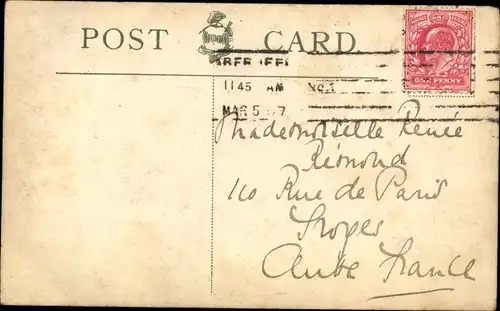 POST CARD
ONE PENNY
11 45 AM No. 1
MAR 5 07
Mademoiselle Renée
Rémond
110 Rue de Paris
Troyes
Aube France